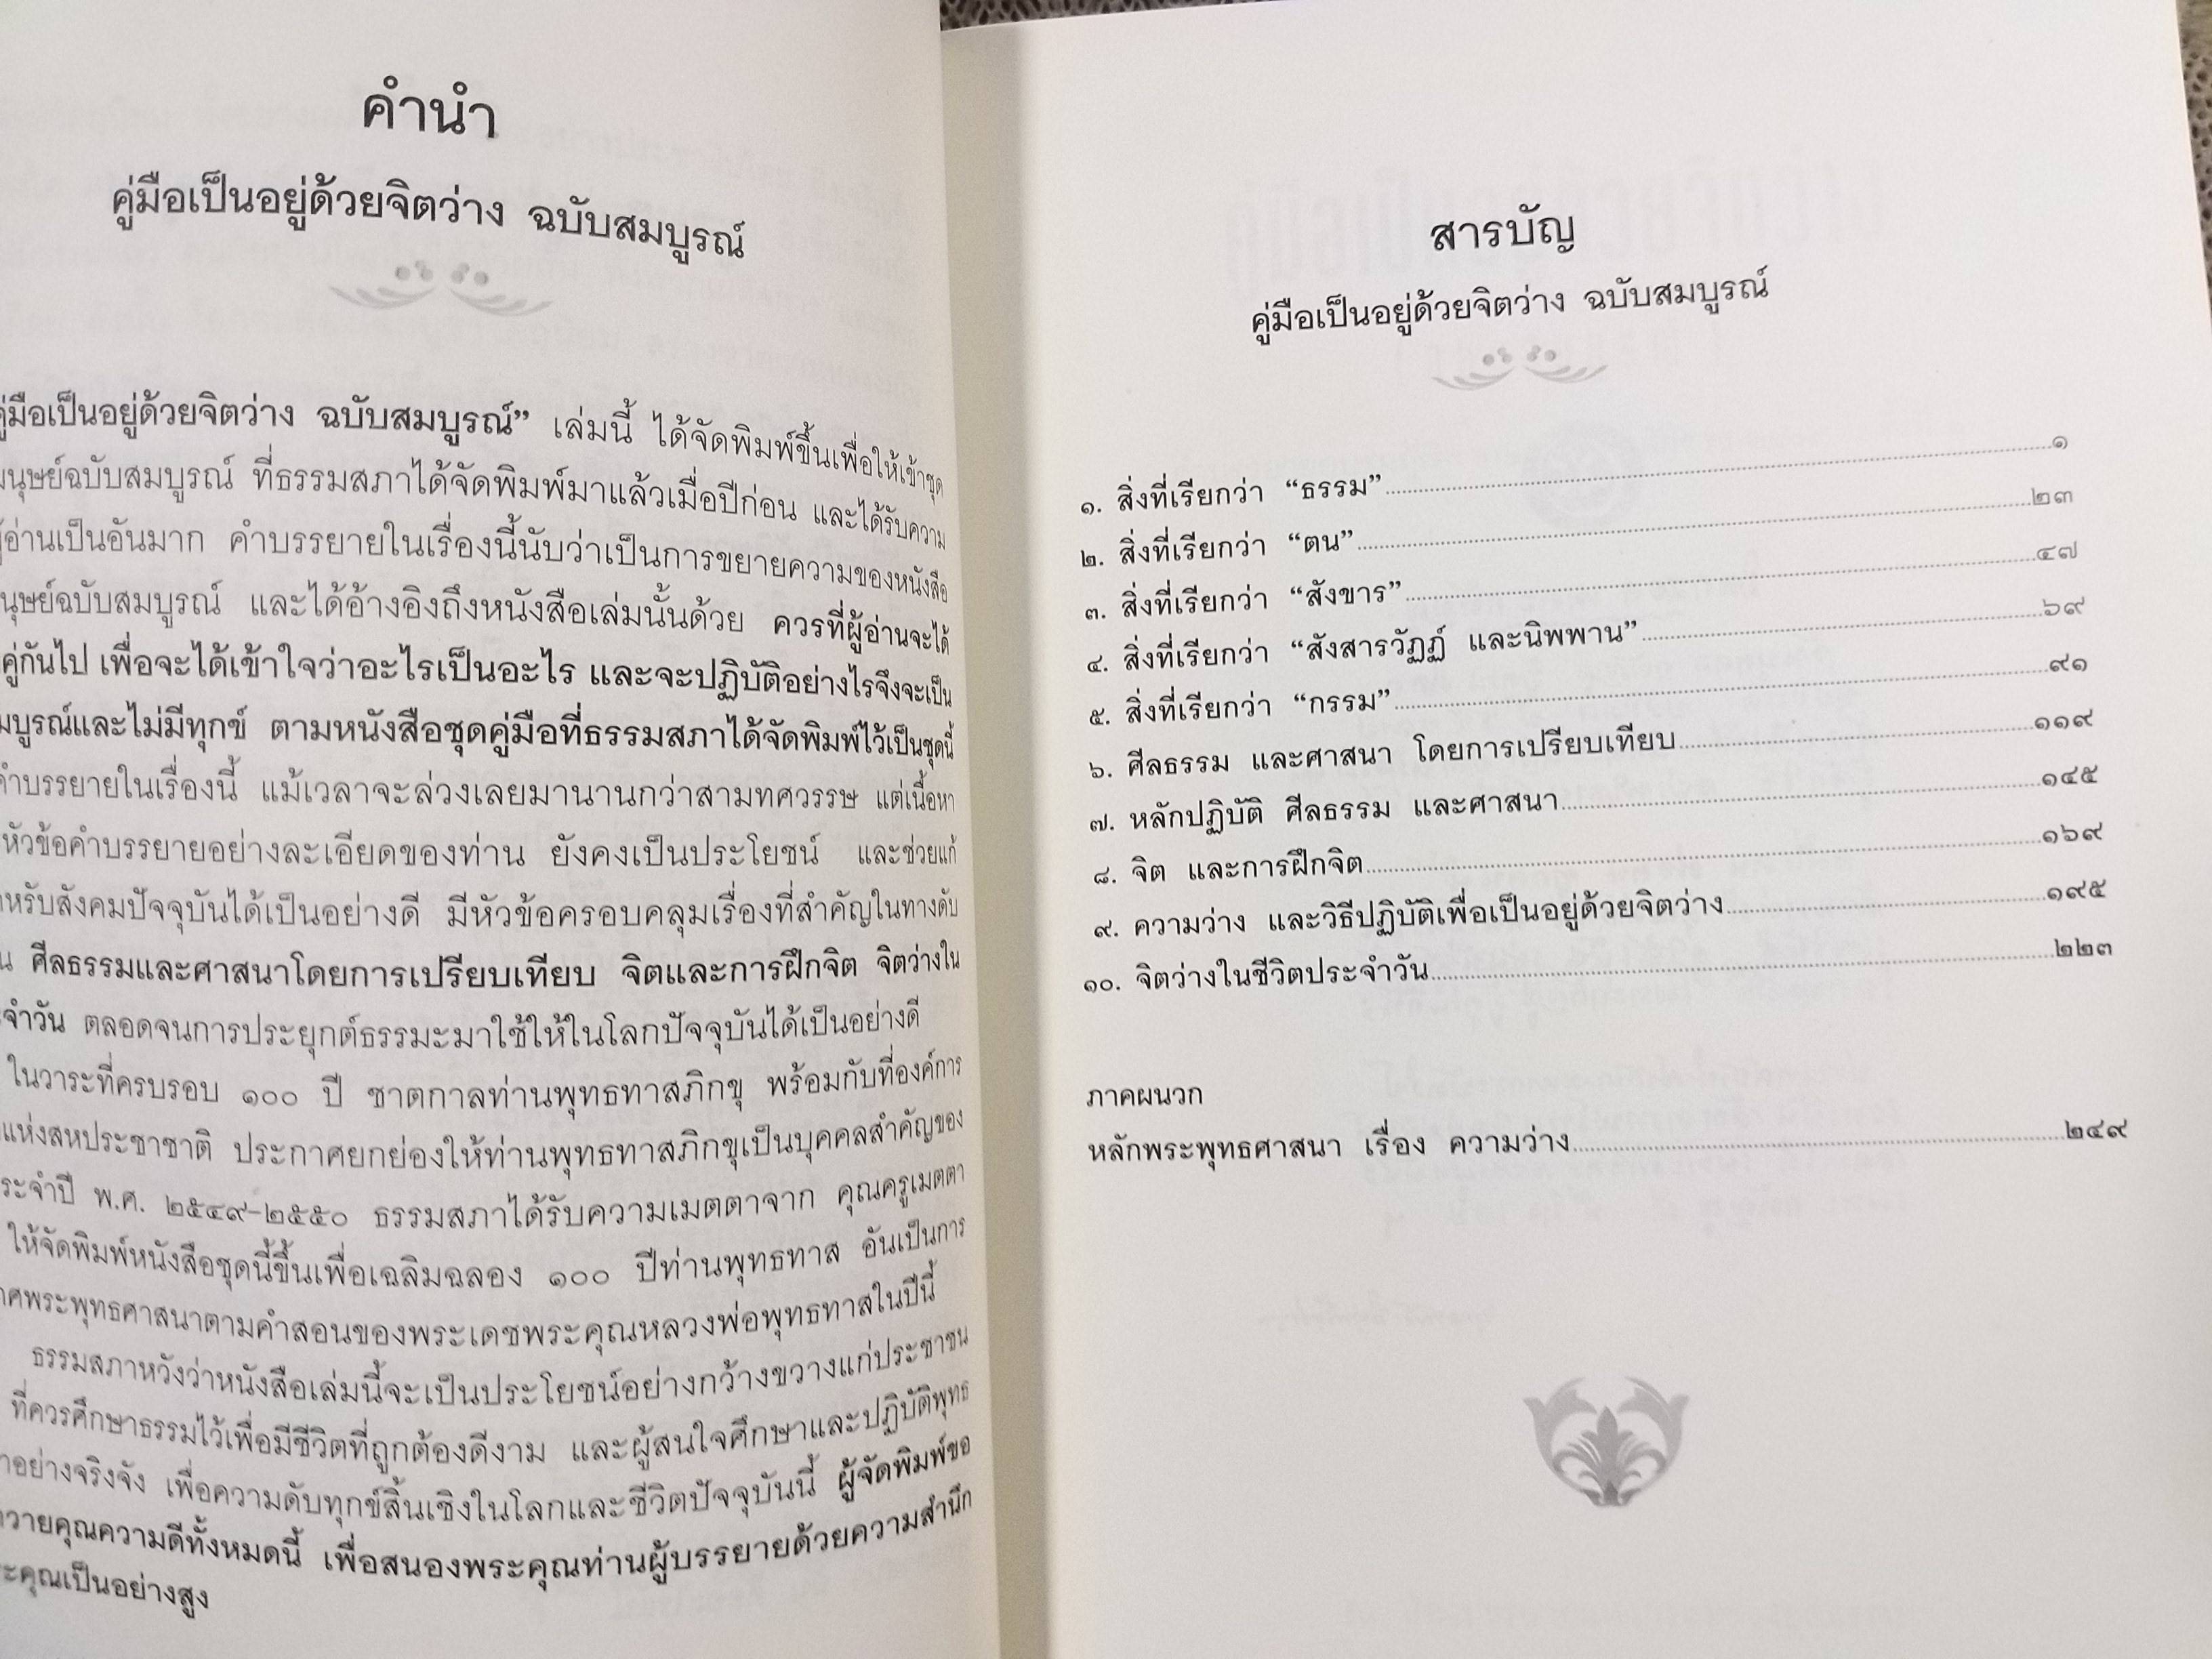 คำนำ
คู่มือเป็นอยู่ด้วยจิตว่าง ฉบับสมบูรณ์
คู่มือเป็นอยู่ด้วยจิตว่าง ฉบับสมบูรณ์” เล่มนี้ ได้จัดพิมพ์ขึ้นเพื่อให้เข้าชุด
มนุษย์ฉบับสมบูรณ์ ที่ธรรมสภาได้จัดพิมพ์มาแล้วเมื่อปีก่อน และได้รับความ
ผู้อ่านเป็นอันมาก คำบรรยายในเรื่องนี้นับว่าเป็นการขยายความของหนังสือ
นุษย์ฉบับสมบูรณ์ และได้อ้างอิงถึงหนังสือเล่มนั้นด้วย ควรที่ผู้อ่านจะได้
คู่กันไป เพื่อจะได้เข้าใจว่าอะไรเป็นอะไร และจะปฏิบัติอย่างไรจึงจะเป็น
มบูรณ์และไม่มีทุกข์ ตามหนังสือชุดคู่มือที่ธรรมสภาได้จัดพิมพ์ไว้เป็นชุดนี้
คำบรรยายในเรื่องนี้ แม้เวลาจะล่วงเลยมานานกว่าสามทศวรรษ แต่เนื้อหา
หัวข้อคำบรรยายอย่างละเอียดของท่าน ยังคงเป็นประโยชน์ และช่วยแก้
หรับสังคมปัจจุบันได้เป็นอย่างดี มีหัวข้อครอบคลุมเรื่องที่สำคัญในทางดับ
น ศีลธรรมและศาสนาโดยการเปรียบเทียบ จิตและการฝึกจิต จิตว่างใน
จำวัน ตลอดจนการประยุกต์ธรรมะมาใช้ให้ในโลกปัจจุบันได้เป็นอย่างดี
ในวาระที่ครบรอบ ๑๐๐ ปี ชาตกาลท่านพุทธทาสภิกขุ พร้อมกับที่องค์การ
แห่งสหประชาชาติ ประกาศยกย่องให้ท่านพุทธทาสภิกขุเป็นบุคคลสำคัญของ
ระจำปี พ.ศ. ๒๕๔๙-๒๕๕๐ ธรรมสภาได้รับความเมตตาจาก คุณครูเมตตา
ให้จัดพิมพ์หนังสือชุดนี้ขึ้นเพื่อเฉลิมฉลอง ๑๐๐ ปีท่านพุทธทาส อันเป็นการ
าศพระพุทธศาสนาตามคำสอนของพระเดชพระคุณหลวงพ่อพุทธทาสในปีนี้
ธรรมสภาหวังว่าหนังสือเล่มนี้จะเป็นประโยชน์อย่างกว้างขวางแก่ประชาชน
ที่ควรศึกษาธรรมไว้เพื่อมีชีวิตที่ถูกต้องดีงาม และผู้สนใจศึกษาและปฏิบัติพุทธ
าอย่างจริงจัง เพื่อความดับทุกข์สิ้นเชิงในโลกและชีวิตปัจจุบันนี้ ผู้จัดพิมพ์ขอ
วายคุณความดีทั้งหมดนี้ เพื่อสนองพระคุณท่านผู้บรรยายด้วยความสำนึก
ะคุณเป็นอย่างสูง
สารบัญ
คู่มือเป็นอยู่ด้วยจิตว่าง ฉบับสมบูรณ์
๑. สิ่งที่เรียกว่า “ธรรม”...............๑
๒. สิ่งที่เรียกว่า “ตน”...............๒๓
๓. สิ่งที่เรียกว่า “สังขาร”...............๔๗
๔. สิ่งที่เรียกว่า “สังสารวัฏฏ์ และนิพพาน”...............๖๙
๕. สิ่งที่เรียกว่า “กรรม”...............๙๑
๖. ศีลธรรม และศาสนา โดยการเปรียบเทียบ...............๑๑๙
๗. หลักปฏิบัติ ศีลธรรม และศาสนา...............๑๔๕
๘. จิต และการฝึกจิต...............๑๖๙
๙. ความว่าง และวิธีปฏิบัติเพื่อเป็นอยู่ด้วยจิตว่าง...............๑๙๕
๑๐. จิตว่างในชีวิตประจำวัน...............๒๒๓
ภาคผนวก
หลักพระพุทธศาสนา เรื่อง ความว่าง...............๒๔๙